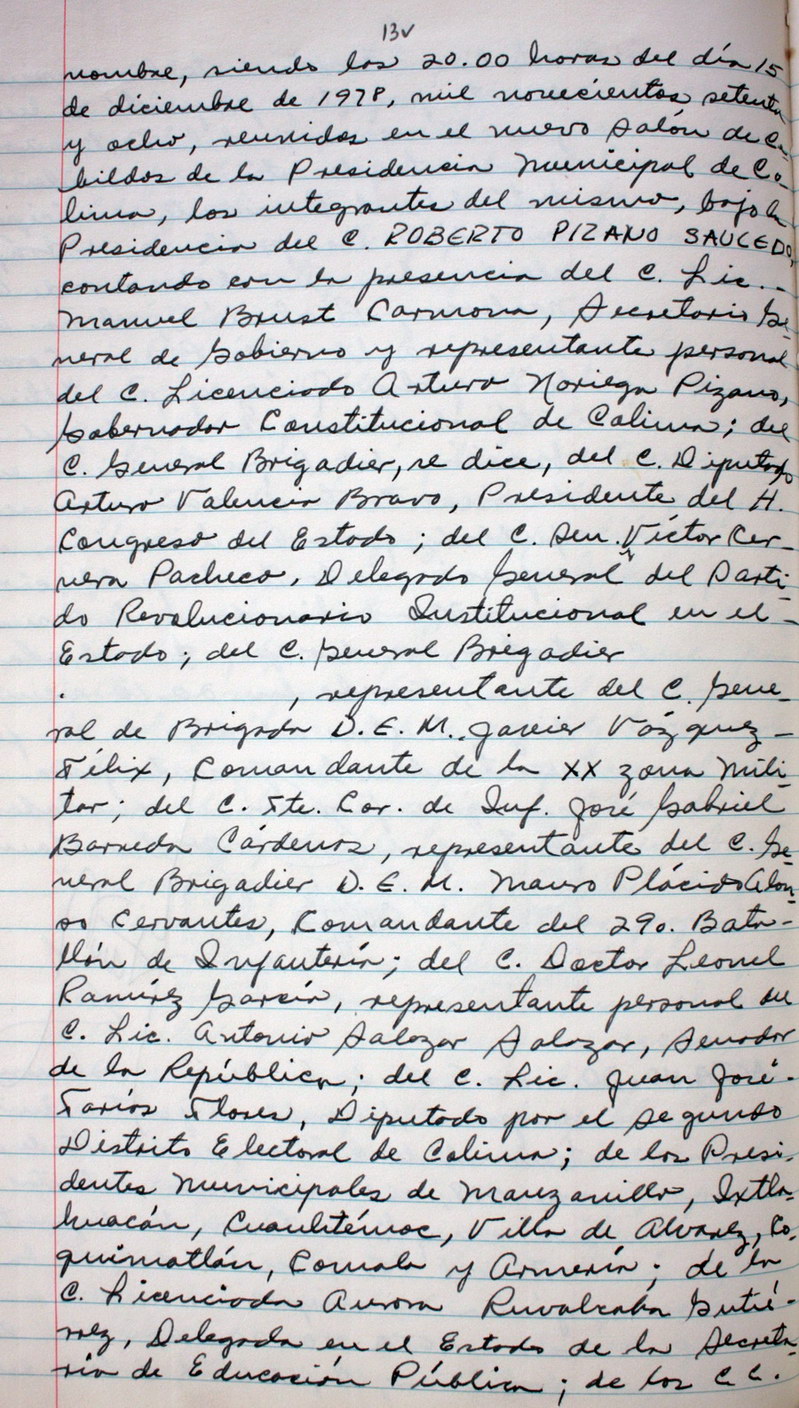 13v
nombre, siendo las 20.00 horas del día 15
de diciembre de 1978, mil novecientos setenta
y ocho, reunidos en el nuevo Salón de Ca-
bildos de la Presidencia Municipal de Co-
lima, los integrantes del mismo, bajo la
Presidencia del C. ROBERTO PIZANO SAUCEDO,
contando con la presencia del C. Lic. -
Manuel Brust Carmona, Secretario Ge-
neral de Gobierno y representante personal
del C. Licenciado Arturo Noriega Pizano,
Gobernador Constitucional de Colima; del
C. General Brigadier, se dice, del C. Diputado
Arturo Valencia Bravo, Presidente del H.
Congreso del Estado; del C. Sen. Víctor Cer-
vera Pacheco, Delegado General del Parti-
do Revolucionario Institucional en el -
Estado; del C. General Brigadier
, representante del C. Gene-
ral de Brigada D.E.M. Javier Vázquez -
Félix, Comandante de la XX zona Mili-
tar; del C. Tte. Cor. de Inf. José Gabriel
Barreda Cárdenas, representante del C. Ge-
neral Brigadier D.E.M. Mauro Plácido Alon-
so Cervantes, Comandante del 29o. Bata-
llón de Infantería; del C. Doctor Leonel
Ramírez García, representante personal del
C. Lic. Antonio Salazar Salazar, Senador
de la República; del C. Lic. Juan José -
Farías Flores, Diputado por el segundo
Distrito Electoral de Colima; de los Presi-
dentes Municipales de Manzanillo, Ixtla-
huacán, Cuauhtémoc, Villa de Alvarez, Co-
quimatlán, Comala y Armería; de la
C. Licenciada Aurora Ruvalcaba Gutié-
rrez, Delegada en el Estado de la Secreta-
ría de Educación Pública; de los C.C.